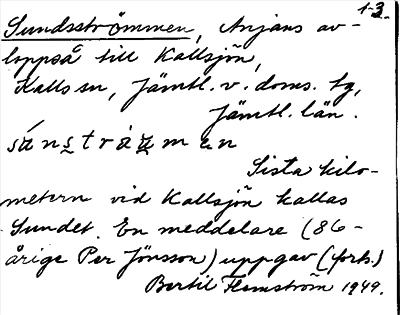 1-3.
Sundsströmmen, Anjans av-
loppså till Kallsjön,
Kalls sn, Jämtl. v. doms. tg,
Jämtl. län.
Sista kilo-
metern vid Kallsjön kallas
Sundet. En meddelare (86-
årige Per Jönsson) uppgav (forts.)
Bertil Flemström 1949.